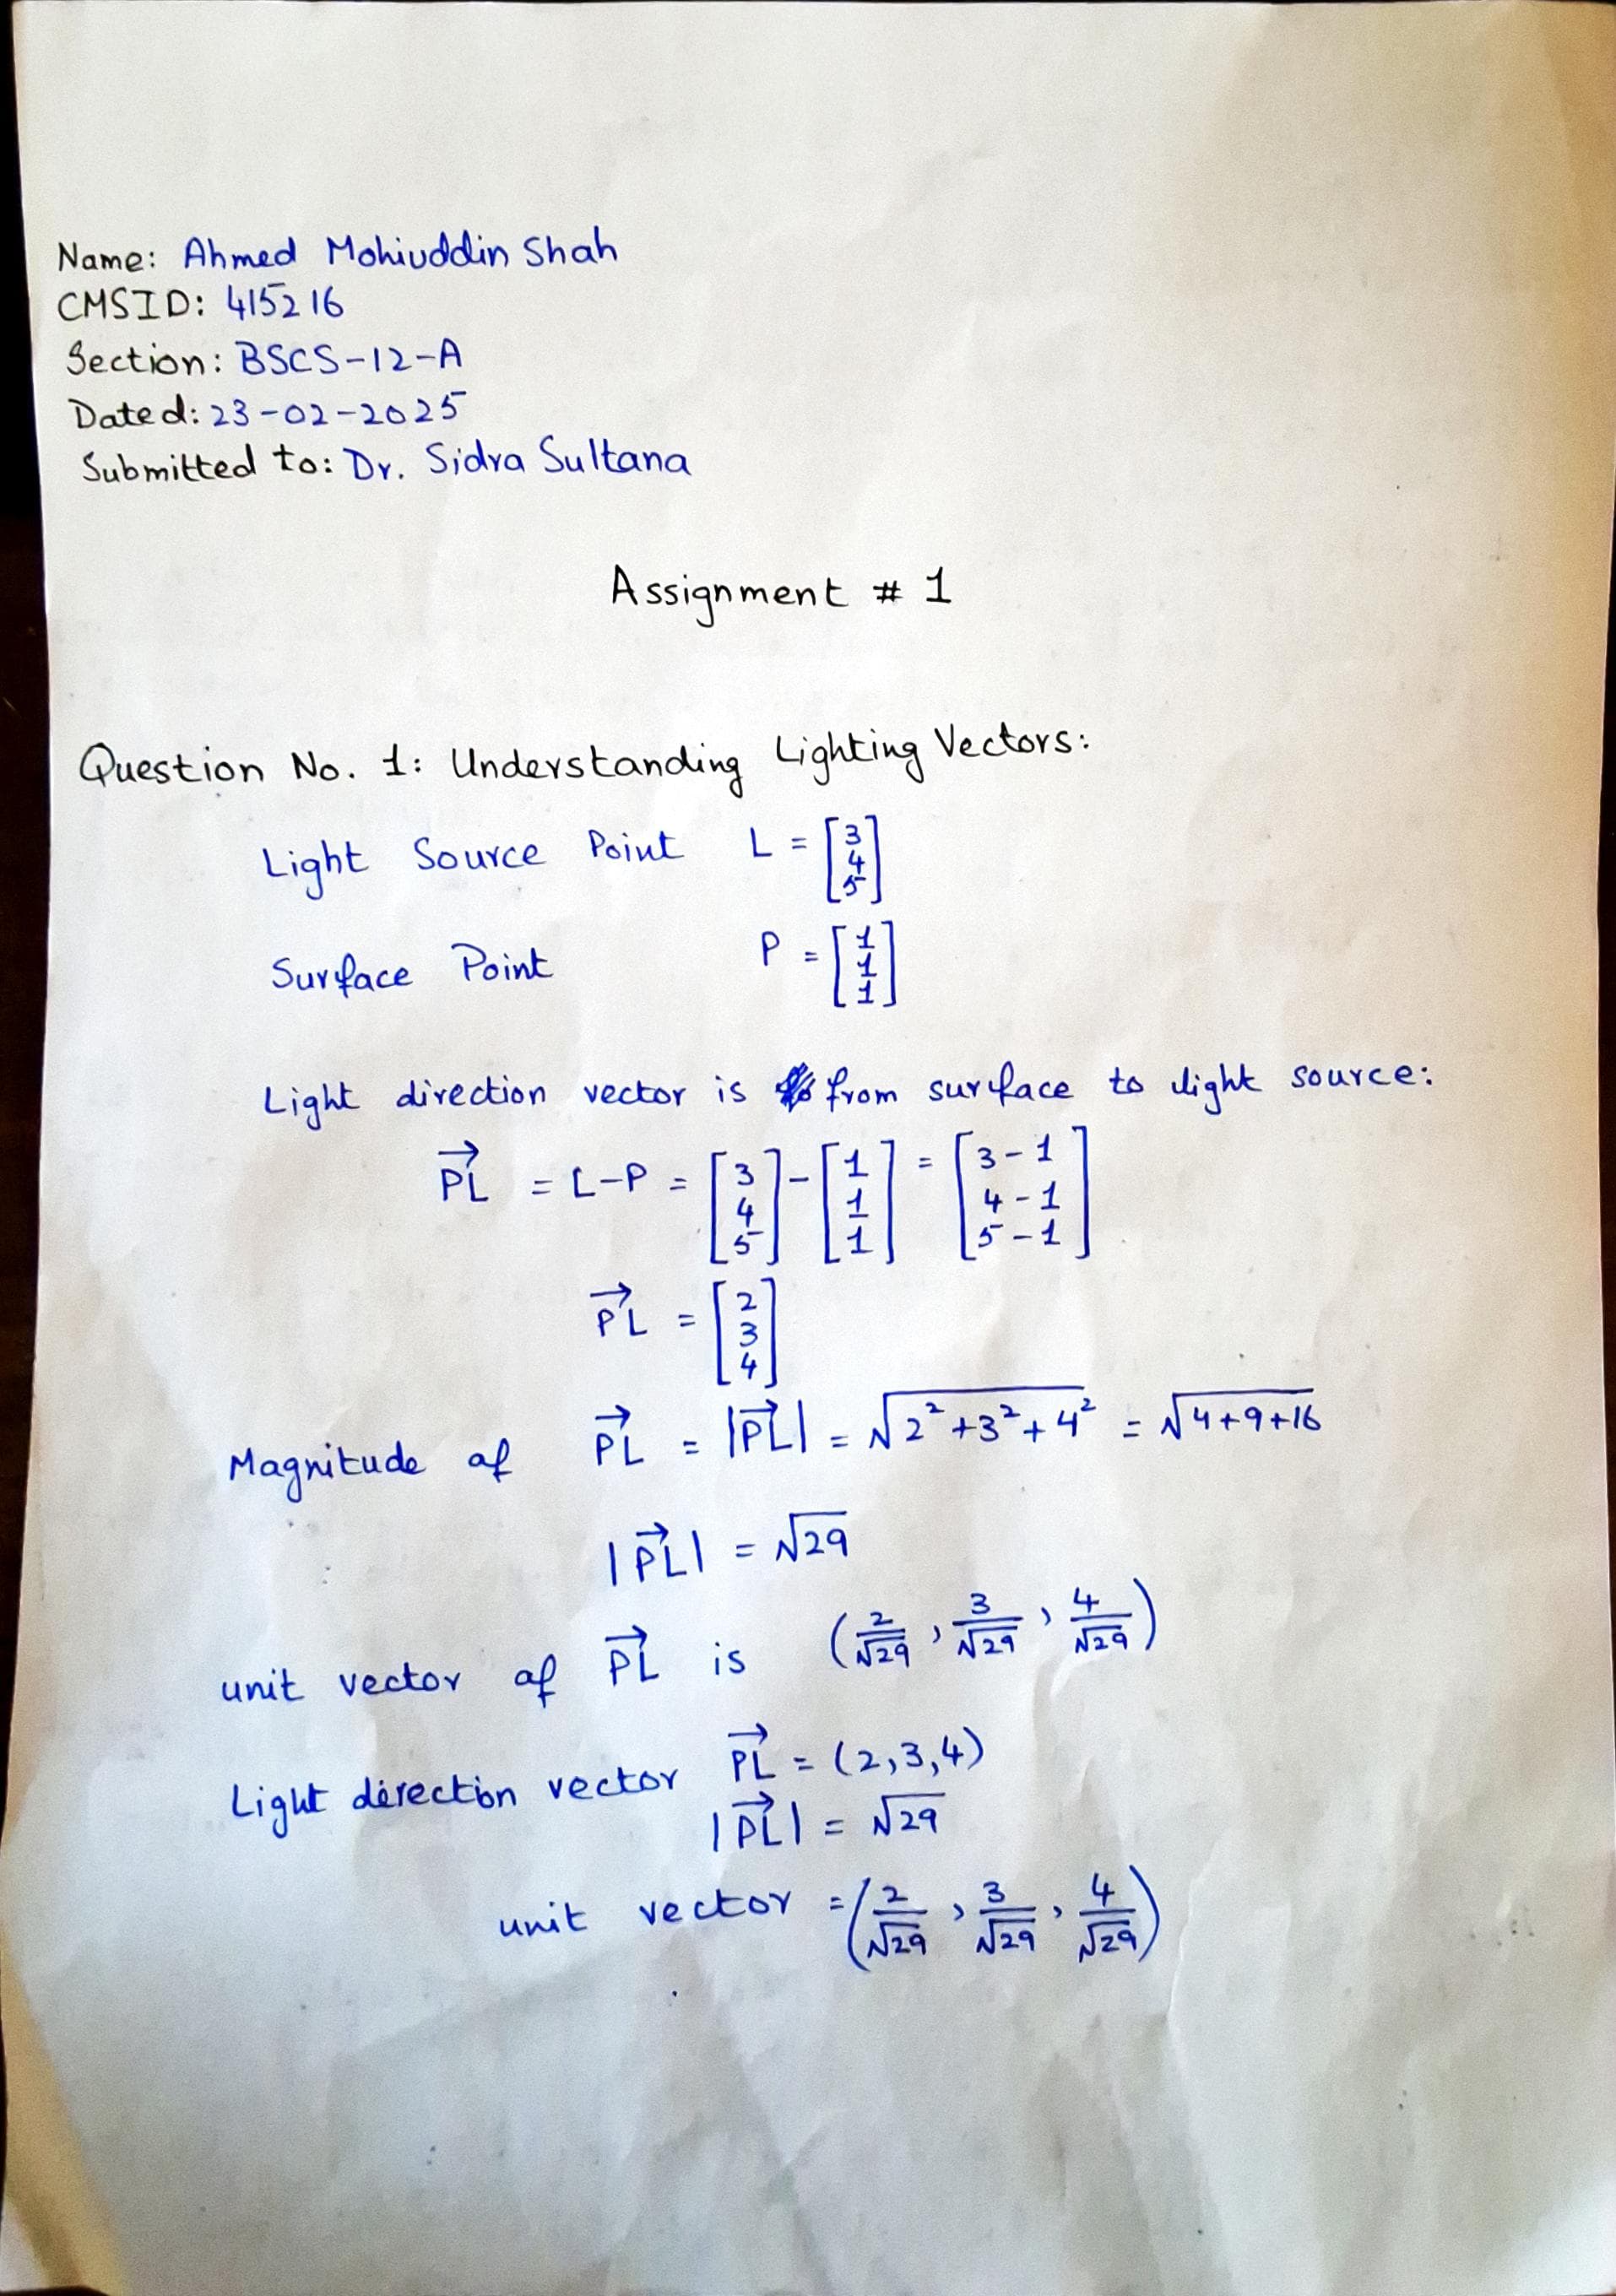 Name: Ahmed Mohiuddin Shah
CMSID: 415216
Section: BSCS-12-A
Dated: 23-02-2025
Submitted to: Dr. Sidra Sultana
Assignment # 1
Question No. 1: Understanding Lighting Vectors:
Light Source Point L = [3 4 5]
Surface Point P = [1 1 1]
Light direction vector is from surface to light source:
→PL = L-P = [3 4 5] - [1 1 1] = [3-1 4-1 5-1]
→PL = [2 3 4]
Magnitude of →PL = |→PL| = √(2²+3²+4²) = √(4+9+16)
|→PL| = √29
unit vector of →PL is (2/√29, 3/√29, 4/√29)
Light direction vector →PL = (2,3,4)
|→PL| = √29
unit vector = (2/√29, 3/√29, 4/√29)